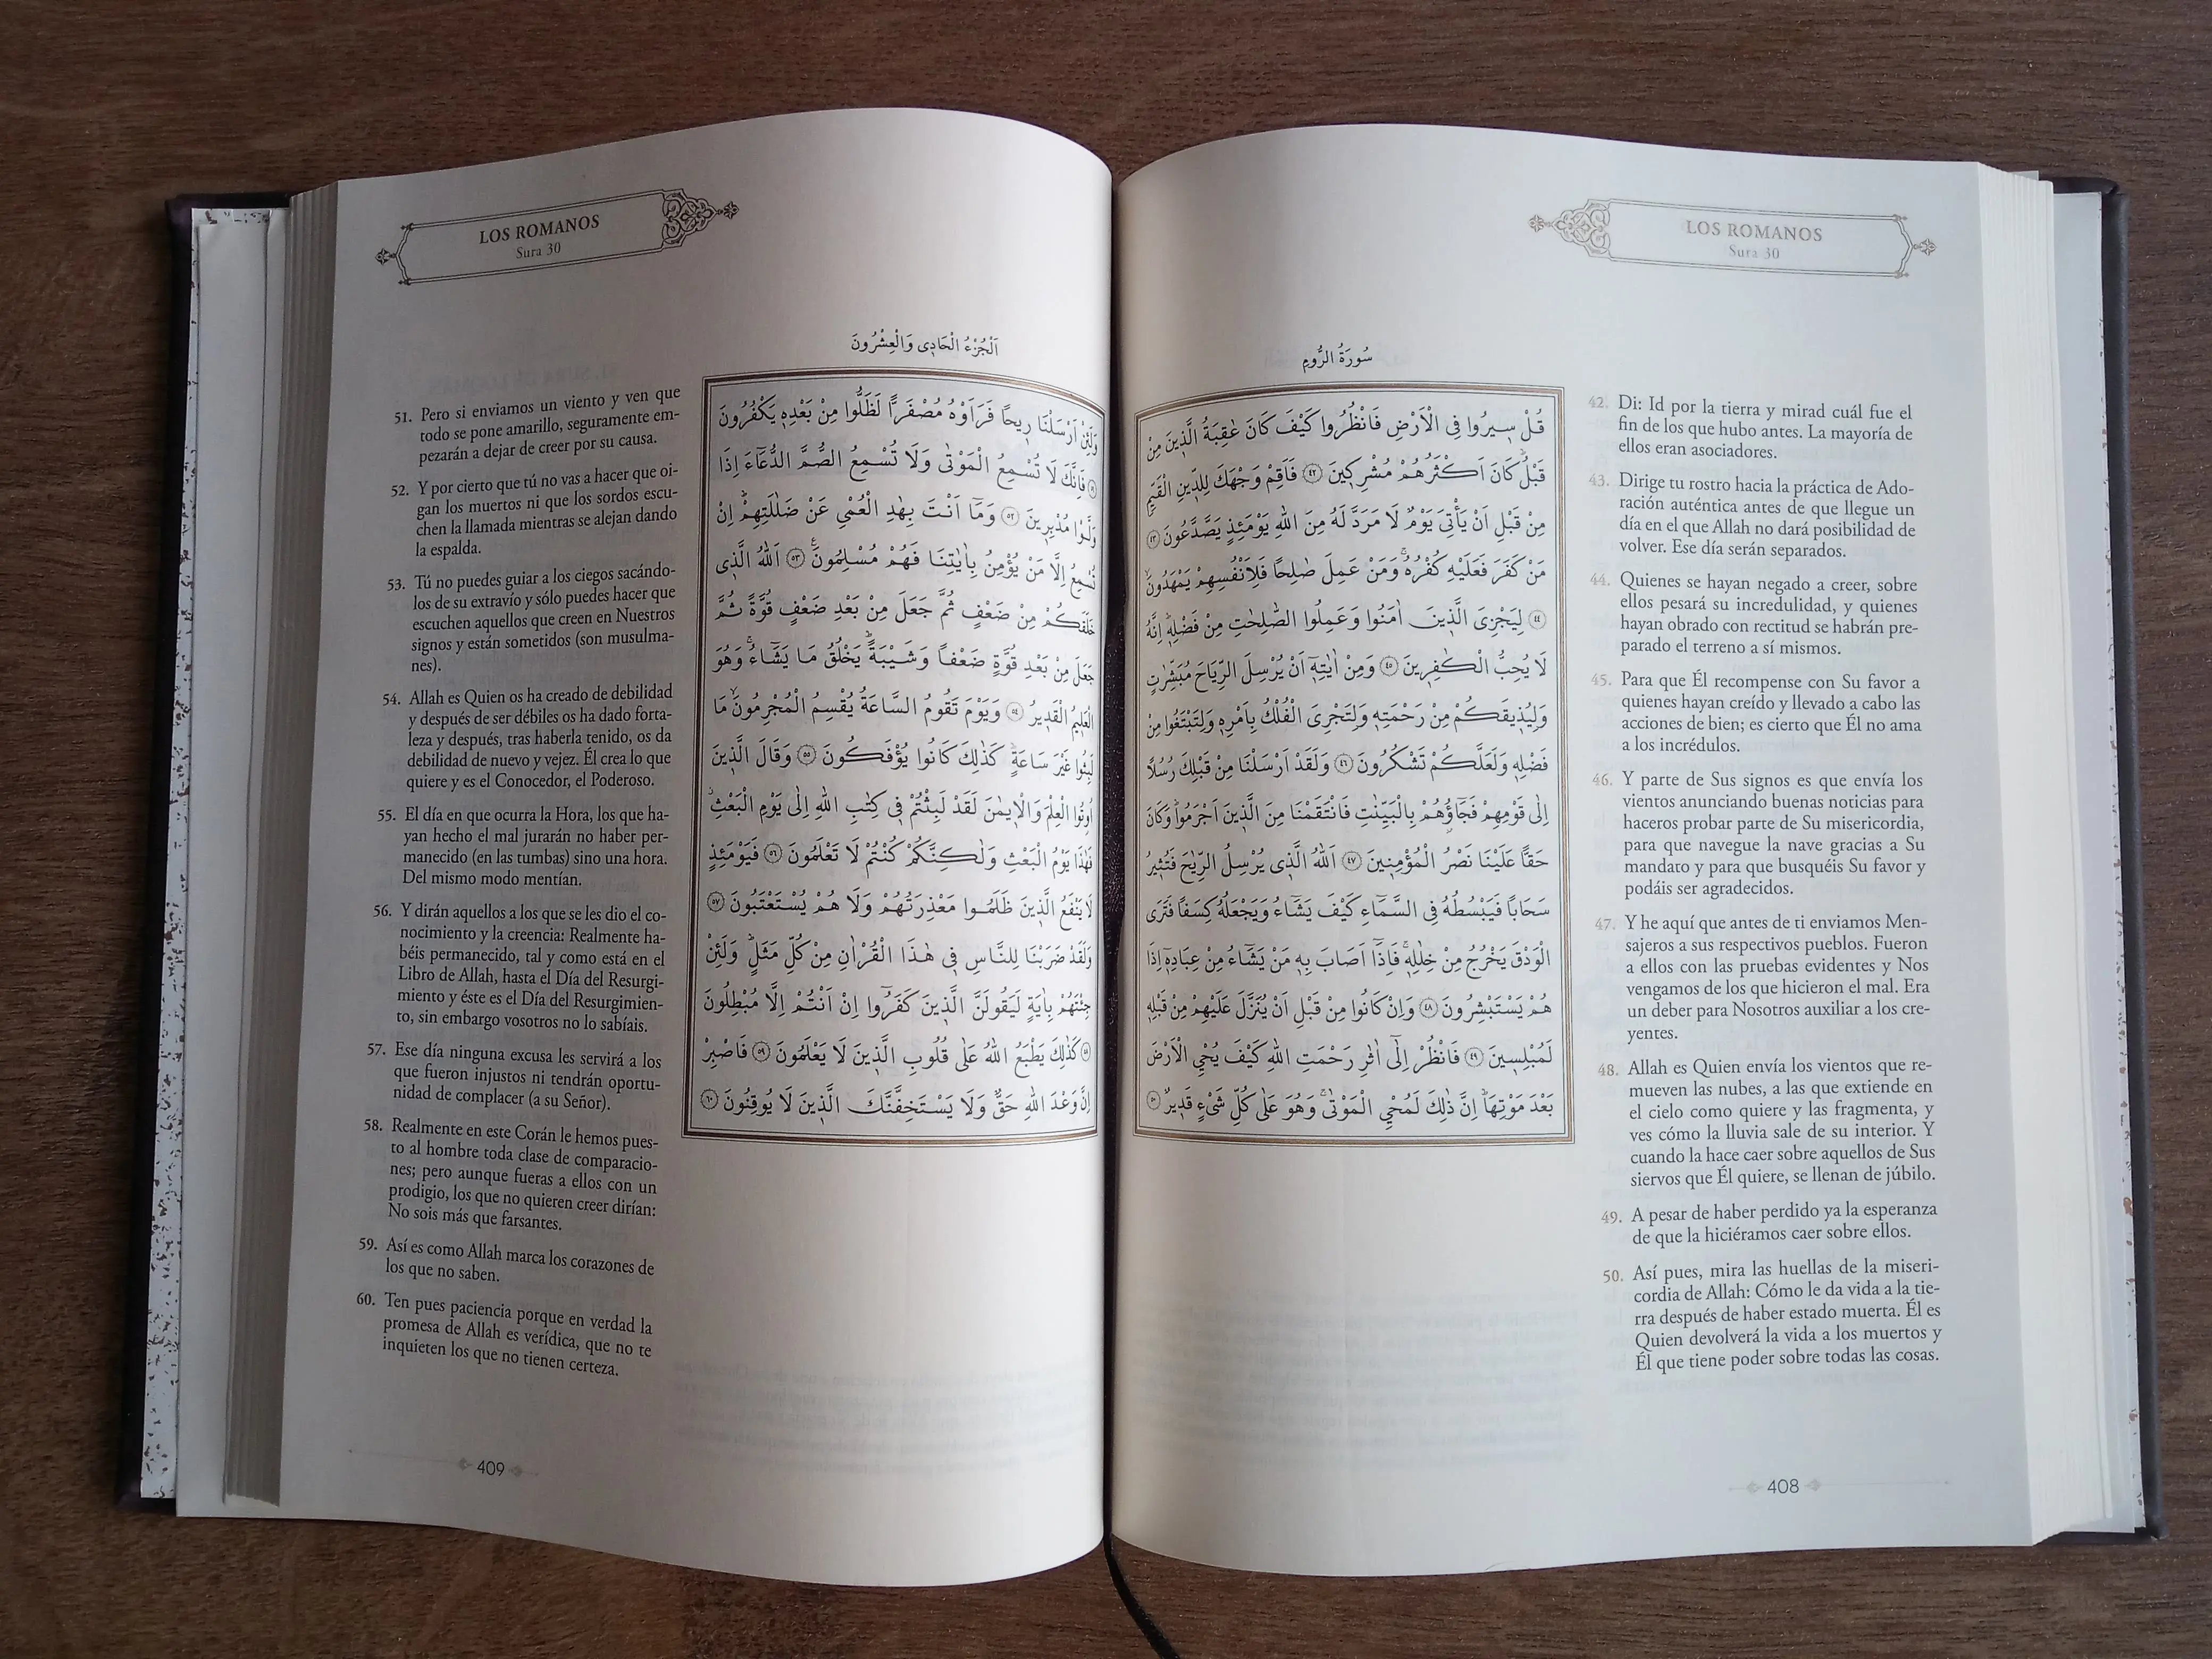 LOS ROMANOS
Sura 30
سُورَةُ الرُّومِ
قُلْ سٖيرُوا فِى الْاَرْضِ فَانْظُرُوا كَيْفَ كَانَ عَاقِبَةُ الَّذٖينَ مِنْ
قَبْلُ كَانَ اَكْثَرُهُمْ مُشْرِكٖينَ ٤٢ فَاَقِمْ وَجْهَكَ لِلدّٖينِ الْقَيِّمِ
مِنْ قَبْلِ اَنْ يَأْتِىَ يَوْمٌ لَا مَرَدَّ لَهُ مِنَ اللّٰهِ يَوْمَئِذٍ يَصَّدَّعُونَ ٤٣
مَنْ كَفَرَ فَعَلَيْهِ كُفْرُهُ وَمَنْ عَمِلَ صَالِحًا فَلِاَنْفُسِهِمْ يَمْهَدُونَ
٤٤ لِيَجْزِىَ الَّذٖينَ اٰمَنُوا وَعَمِلُوا الصَّالِحَاتِ مِنْ فَضْلِهٖ اِنَّهُ
لَا يُحِبُّ الْكَافِرٖينَ ٤٥ وَمِنْ اٰيَاتِهٖ اَنْ يُرْسِلَ الرِّيَاحَ مُبَشِّرَاتٍ
وَلِيُذٖيقَكُمْ مِنْ رَحْمَتِهٖ وَلِتَجْرِىَ الْفُلْكُ بِاَمْرِهٖ وَلِتَبْتَغُوا مِنْ
فَضْلِهٖ وَلَعَلَّكُمْ تَشْكُرُونَ ٤٦ وَلَقَدْ اَرْسَلْنَا مِنْ قَبْلِكَ رُسُلًا
اِلٰى قَوْمِهِمْ فَجَاؤُهُمْ بِالْبَيِّنَاتِ فَانْتَقَمْنَا مِنَ الَّذٖينَ اَجْرَمُوا وَكَانَ
حَقًّا عَلَيْنَا نَصْرُ الْمُؤْمِنٖينَ ٤٧ اَللّٰهُ الَّذٖى يُرْسِلُ الرِّيَاحَ فَتُثٖيرُ
سَحَابًا فَيَبْسُطُهُ فِى السَّمَاءِ كَيْفَ يَشَاءُ وَيَجْعَلُهُ كِسَفًا فَتَرَى
الْوَدْقَ يَخْرُجُ مِنْ خِلَالِهٖ فَاِذَا اَصَابَ بِهٖ مَنْ يَشَاءُ مِنْ عِبَادِهٖ اِذَا
هُمْ يَسْتَبْشِرُونَ ٤٨ وَاِنْ كَانُوا مِنْ قَبْلِ اَنْ يُنَزَّلَ عَلَيْهِمْ مِنْ قَبْلِهٖ
لَمُبْلِسٖينَ ٤٩ فَانْظُرْ اِلٰى اٰثَارِ رَحْمَتِ اللّٰهِ كَيْفَ يُحْيِ الْاَرْضَ
بَعْدَ مَوْتِهَا اِنَّ ذٰلِكَ لَمُحْيِ الْمَوْتٰى وَهُوَ عَلٰى كُلِّ شَىْءٍ قَدٖيرٌ ٥٠
42. Di: Id por la tierra y mirad cuál fue el
fin de los que hubo antes. La mayoría de
ellos eran asociadores.
43. Dirige tu rostro hacia la práctica de Ado-
ración auténtica antes de que llegue un
día en el que Allah no dará posibilidad de
volver. Ese día serán separados.
44. Quienes se hayan negado a creer, sobre
ellos pesará su incredulidad, y quienes
hayan obrado con rectitud se habrán pre-
parado el terreno a sí mismos.
45. Para que Él recompense con Su favor a
quienes hayan creído y llevado a cabo las
acciones de bien; es cierto que Él no ama
a los incrédulos.
46. Y parte de Sus signos es que envía los
vientos anunciando buenas noticias para
haceros probar parte de Su misericordia,
para que navegue la nave gracias a Su
mandato y para que busquéis Su favor y
podáis ser agradecidos.
47. Y he aquí que antes de ti enviamos Men-
sajeros a sus respectivos pueblos. Fueron
a ellos con las pruebas evidentes y Nos
vengamos de los que hicieron el mal. Era
un deber para Nosotros auxiliar a los cre-
yentes.
48. Allah es Quien envía los vientos que re-
mueven las nubes, a las que extiende en
el cielo como quiere y las fragmenta, y
ves cómo la lluvia sale de su interior. Y
cuando la hace caer sobre aquellos de Sus
siervos que Él quiere, se llenan de júbilo.
49. A pesar de haber perdido ya la esperanza
de que la hiciéramos caer sobre ellos.
50. Así pues, mira las huellas de la miseri-
cordia de Allah: Cómo le da vida a la tie-
rra después de haber estado muerta. Él es
Quien devolverá la vida a los muertos y
Él que tiene poder sobre todas las cosas.
408
LOS ROMANOS
Sura 30
اَلْجُزْءُ الْحَادٖى وَالْعِشْرُونَ
وَلَئِنْ اَرْسَلْنَا رٖيحًا فَرَاَوْهُ مُصْفَرًّا لَظَلُّوا مِنْ بَعْدِهٖ يَكْفُرُونَ
٥١ فَاِنَّكَ لَا تُسْمِعُ الْمَوْتٰى وَلَا تُسْمِعُ الصُّمَّ الدُّعَاءَ اِذَا
وَلَّوْا مُدْبِرٖينَ ٥٢ وَمَا اَنْتَ بِهَادِ الْعُمْىِ عَنْ ضَلَالَتِهِمْ اِنْ
تُسْمِعُ اِلَّا مَنْ يُؤْمِنُ بِاٰيَاتِنَا فَهُمْ مُسْلِمُونَ ٥٣ اَللّٰهُ الَّذٖى
خَلَقَكُمْ مِنْ ضَعْفٍ ثُمَّ جَعَلَ مِنْ بَعْدِ ضَعْفٍ قُوَّةً ثُمَّ
جَعَلَ مِنْ بَعْدِ قُوَّةٍ ضَعْفًا وَشَيْبَةً يَخْلُقُ مَا يَشَاءُ وَهُوَ
الْعَلٖيمُ الْقَدٖيرُ ٥٤ وَيَوْمَ تَقُومُ السَّاعَةُ يُقْسِمُ الْمُجْرِمُونَ مَا
لَبِثُوا غَيْرَ سَاعَةٍ كَذٰلِكَ كَانُوا يُؤْفَكُونَ ٥٥ وَقَالَ الَّذٖينَ
اُوتُوا الْعِلْمَ وَالْاٖيمَانَ لَقَدْ لَبِثْتُمْ فٖى كِتَابِ اللّٰهِ اِلٰى يَوْمِ الْبَعْثِ
فَهٰذَا يَوْمُ الْبَعْثِ وَلٰكِنَّكُمْ كُنْتُمْ لَا تَعْلَمُونَ ٥٦ فَيَوْمَئِذٍ
لَا يَنْفَعُ الَّذٖينَ ظَلَمُوا مَعْذِرَتُهُمْ وَلَا هُمْ يُسْتَعْتَبُونَ ٥٧
وَلَقَدْ ضَرَبْنَا لِلنَّاسِ فٖى هٰذَا الْقُرْاٰنِ مِنْ كُلِّ مَثَلٍ وَلَئِنْ
جِئْتَهُمْ بِاٰيَةٍ لَيَقُولَنَّ الَّذٖينَ كَفَرُوا اِنْ اَنْتُمْ اِلَّا مُبْطِلُونَ
٥٨ كَذٰلِكَ يَطْبَعُ اللّٰهُ عَلٰى قُلُوبِ الَّذٖينَ لَا يَعْلَمُونَ ٥٩ فَاصْبِرْ
اِنَّ وَعْدَ اللّٰهِ حَقٌّ وَلَا يَسْتَخِفَّنَّكَ الَّذٖينَ لَا يُوقِنُونَ ٦٠
51. Pero si enviamos un viento y ven que
todo se pone amarillo, seguramente em-
pezarán a dejar de creer por su causa.
52. Y por cierto que tú no vas a hacer que oi-
gan los muertos ni que los sordos escu-
chen la llamada mientras se alejan dando
la espalda.
53. Tú no puedes guiar a los ciegos sacándo-
los de su extravío y sólo puedes hacer que
escuchen aquellos que creen en Nuestros
signos y están sometidos (son musulma-
nes).
54. Allah es Quien os ha creado de debilidad
y después de ser débiles os ha dado forta-
leza y después, tras haberla tenido, os da
debilidad de nuevo y vejez. Él crea lo que
quiere y es el Conocedor, el Poderoso.
55. El día en que ocurra la Hora, los que ha-
yan hecho el mal jurarán no haber per-
manecido (en las tumbas) sino una hora.
Del mismo modo mentían.
56. Y dirán aquellos a los que se les dio el co-
nocimiento y la creencia: Realmente ha-
béis permanecido, tal y como está en el
Libro de Allah, hasta el Día del Resurgi-
miento y éste es el Día del Resurgimien-
to, sin embargo vosotros no lo sabíais.
57. Ese día ninguna excusa les servirá a los
que fueron injustos ni tendrán oportu-
nidad de complacer (a su Señor).
58. Realmente en este Corán le hemos pues-
to al hombre toda clase de comparacio-
nes; pero aunque fueras a ellos con un
prodigio, los que no quieren creer dirían:
No sois más que farsantes.
59. Así es como Allah marca los corazones de
los que no saben.
60. Ten pues paciencia porque en verdad la
promesa de Allah es verídica, que no te
inquieten los que no tienen certeza.
409